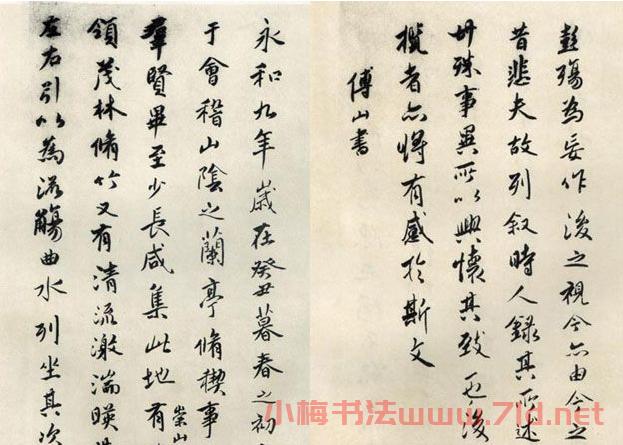 永和九年歲在癸丑暮春之初
于會稽山陰之蘭亭脩禊事
羣賢畢至少長咸集此地有
崇山
領茂林脩竹又有清流激湍暎
左右引以為流觴曲水列坐其次
彭殤為妄作後之視今亦由今之
昔悲夫故列叙時人錄其所述
世殊事異所以興懷其致一也後
攬者亦將有感於斯文
傅山書
小梅书法www.7ld.net